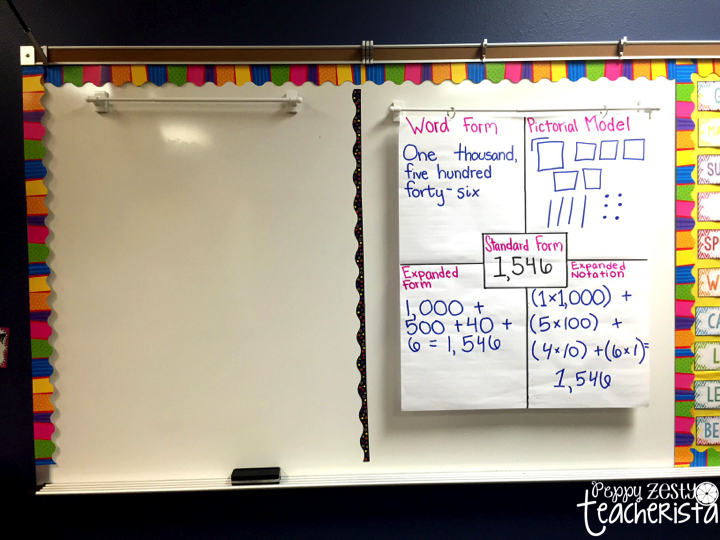 Word Form
One thousand,
five hundred
forty-six
Pictorial Model
Standard Form
1,546
Expanded
Form
1,000 +
500 + 40 +
6 = 1,546
Expanded
Notation
(1x1,000) +
(5x100) +
(4x10) + (6x1) =
1,546
SU
SP
CA
LE
BE
Peppy Zesty
Teacherista